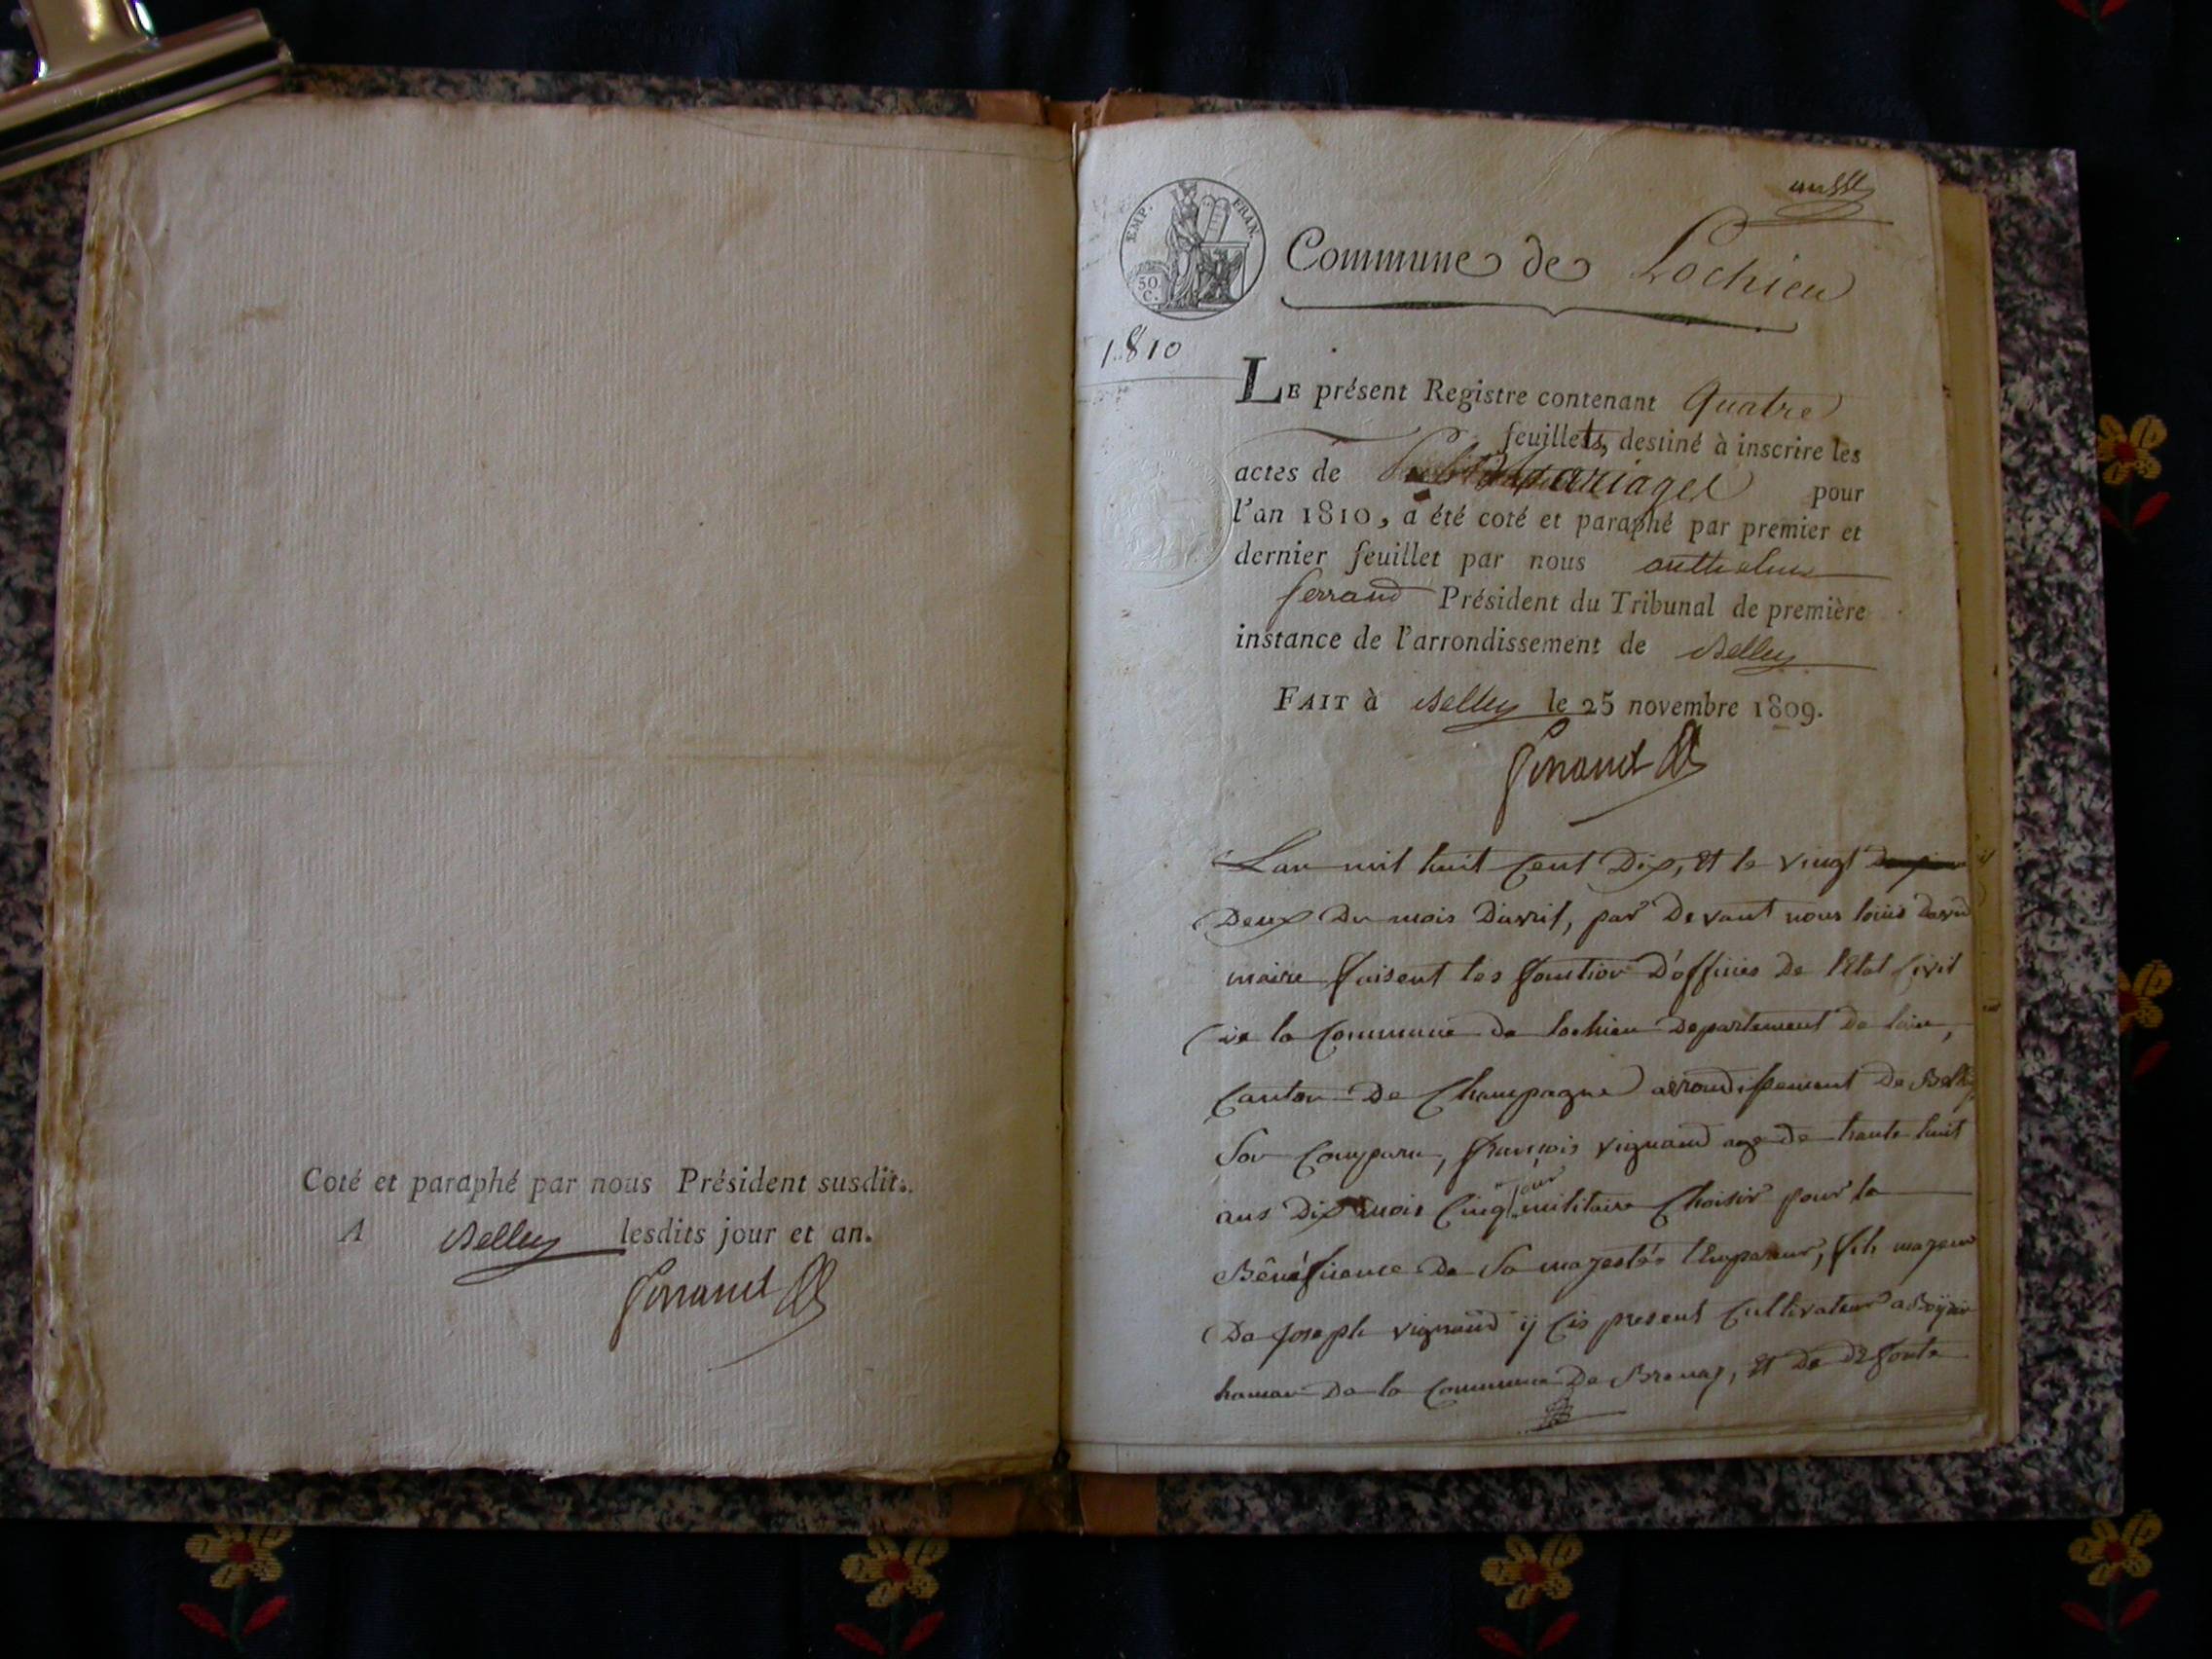 Coté et paraphé par nous Président susdit.
A Belley lesdits jour et an.
Ferrand
EMP. FRAN.
50 C.
Commune de Lochieu
1810
LE présent Registre contenant quatre
feuillets, destiné à inscrire les
actes de mariages pour
l'an 1810, a été coté et paraphé par premier et
dernier feuillet par nous anthelme
ferrand Président du Tribunal de première
instance de l'arrondissement de Belley
FAIT à Belley le 25 novembre 1809.
Ferrand
Lan mil huit Cent Dix, et le vingt
Deux Du mois Davril, par Devant nous louis
maire faisent les fontion D'officies De l'Etat Civil
De la Commune De lochieu Departement De lain,
Canton De Champagne arondissement De Belley
Son Comparu, francois vignand age de trante huit
ans Dix mois Cinq jour militaire Choisir pour la
Bénéficence De Sa majesté l'Emparaur, fils majeur
De Joseph vignand ij Cis present Cultivateur a
hamau De la Commune De Brenaz, et De Defonte